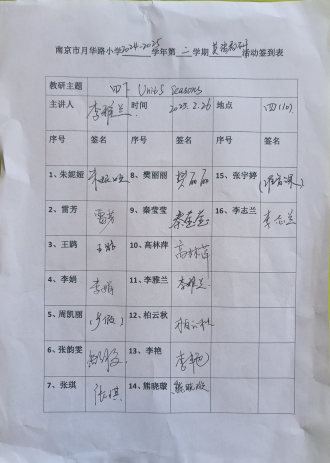 南京市月华路小学2024-2025学年第二学期英语教研活动签到表
教研主题 四下 Unit5 Seasons
主讲人 李雅兰 时间 2025.2.26 地点 四(10)
序号 签名 序号 签名 序号 签名
1、朱妮娅 朱妮娅 8、樊丽丽 樊丽丽 15、张宇婷
2、雷芳 雷芳 9、秦莹莹 秦莹莹 16、李志兰 李志兰
3、王鹞 王鹞 10、高林萍 高林萍
4、李娟 李娟 11、李雅兰 李雅兰
5、周凯丽 12、柏云秋 柏云秋
6、张韵雯 13、李艳 李艳
7、张琪 张琪 14、熊晓璇 熊晓璇